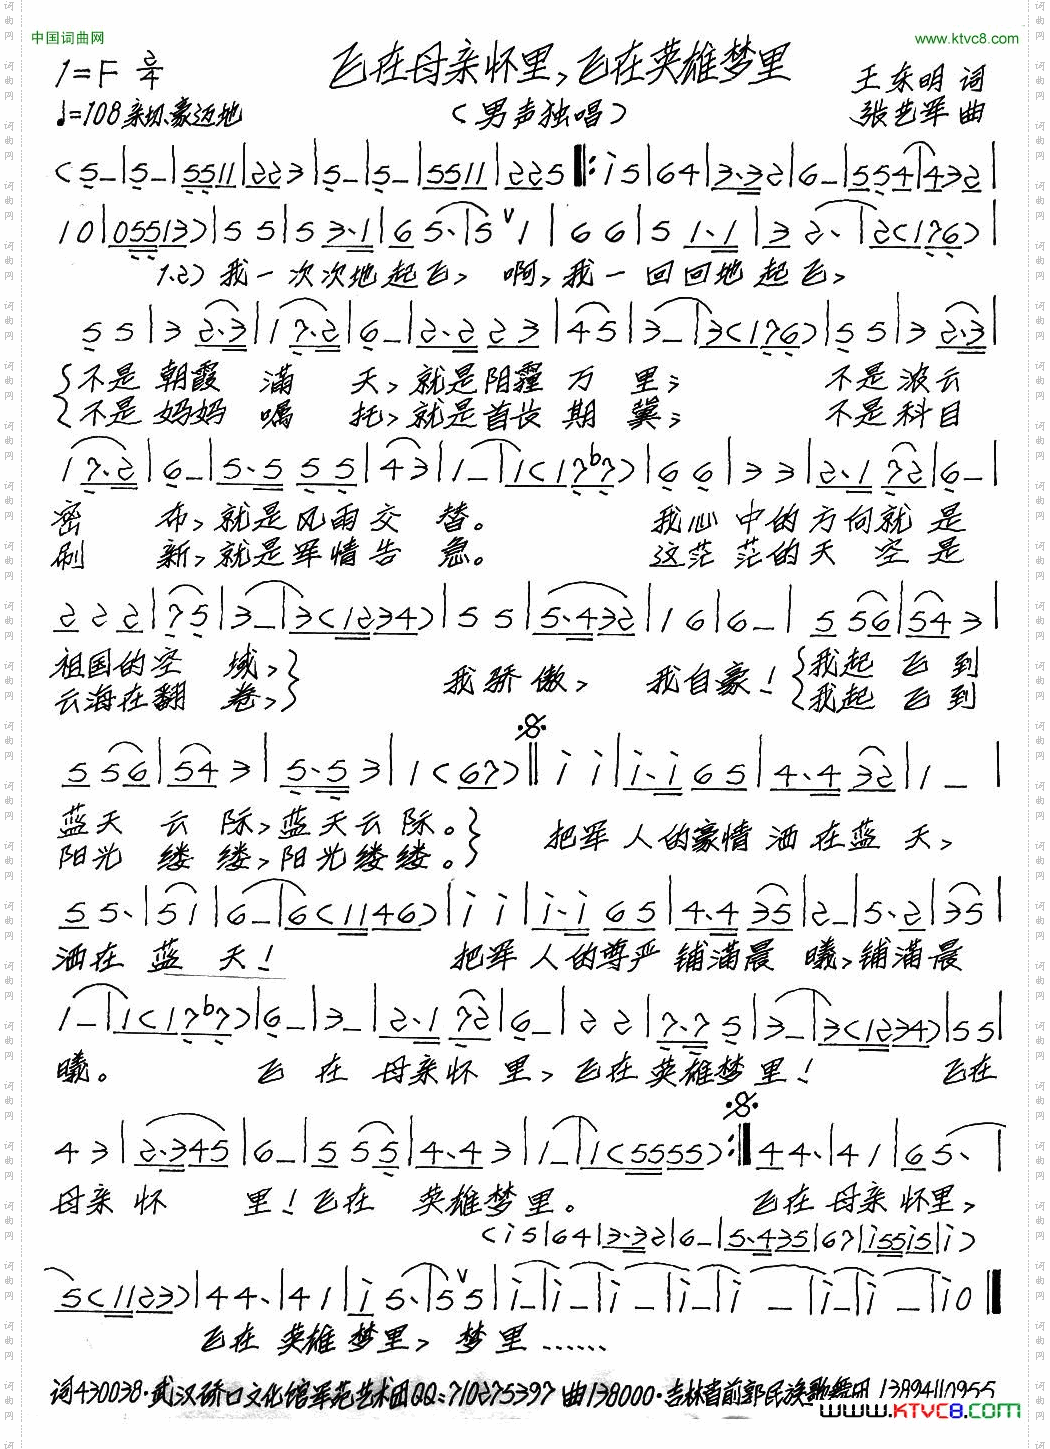 中国词曲网
www.ktvc8.com
飞在母亲怀里,飞在英雄梦里
1=F 2/4
王东明 词
♩=108 亲切、豪迈地
(男声独唱)
张艺军 曲
(5 – | 5 – | 5 5 1 1 | 2 2 3 | 5 – | 5 – | 5 5 1 1 | 2 2 5 ‖: i 5 | 6 4 | 3·3 2 | 6 – | 5 5 4 | 4 3 2 |
1 0 | 0 5 5 1 3) | 5 5 | 5 3·1 | 6 5· | 5 ∨ 1 | 6 6 | 5 1·1 | 3 2· | 2 (1 7 6) |
1.2) 我一次次地起飞, 啊,我一回回地起飞,
5 5 | 3 2·3 | 1 7·2 | 6 – | 2·2 2 3 | 4 5 | 3 – | 3 (1 7 6) | 5 5 | 3 2·3 |
不是朝霞满天,就是阳霾万里; 不是浓云
不是妈妈嘱托,就是首长期冀; 不是科目
1 7·2 | 6 – | 5·5 5 5 | 4 3 | 1 – | 1 (1 7 ♭7) | 6 6 | 3 3 | 2·1 7 2 | 6 – |
密布,就是风雨交替。 我心中的方向就是
刷新,就是军情告急。 这茫茫的天空是
2 2 2 | 7 5 | 3 – | 3 (1 2 3 4) | 5 5 | 5·4 3 2 | 1 6 | 6 – | 5 5 6 | 5 4 3 |
祖国的空域, 我骄傲, 我自豪! 我起飞到
云海在翻卷, 我起飞到
5 5 6 | 5 4 3 | 5·5 3 | 1 (6 7) ‖ i i | i·i 6 5 | 4·4 3 2 | 1 – |
蓝天云际,蓝天云际。 把军人的豪情洒在蓝天,
阳光缕缕,阳光缕缕。
5 5· | 5 1 | 6 – | 6 (1 1 4 6) | i i | i·i 6 5 | 4·4 3 5 | 2 – | 5·2 | 3 5 |
洒在蓝天! 把军人的尊严铺满晨曦,铺满晨
1 – | 1 (1 7 ♭7) | 6 – | 3 – | 2·1 7 2 | 6 – | 2 2 | 7·7 5 | 3 – | 3 (1 2 3 4) | 5 5 |
曦。 飞在母亲怀里,飞在英雄梦里! 飞在
4 3 | 2·3 4 5 | 6 – | 5 5 5 | 4·4 3 | 1 – | 1 (5 5 5 5) :‖ 4 4· | 4 1 | 6 5· |
母亲怀里!飞在英雄梦里。 飞在母亲怀里,
(i 5 | 6 4 | 3·3 2 | 6 – | 5·4 3 5 | 6 7 | i 5 5 i 5 | i)
5 (1 1 2 3) | 4 4· | 4 1 | i 5· | 5 ∨ 5 | i – | i – | i – | i – | i – | i – | i – | i 0 ‖
飞在英雄梦里,梦里……
词430038·武汉硚口文化馆军苑艺术团QQ:710275397 曲138000·吉林省前郭民族歌舞团 13894110955
www.KTVC8.com